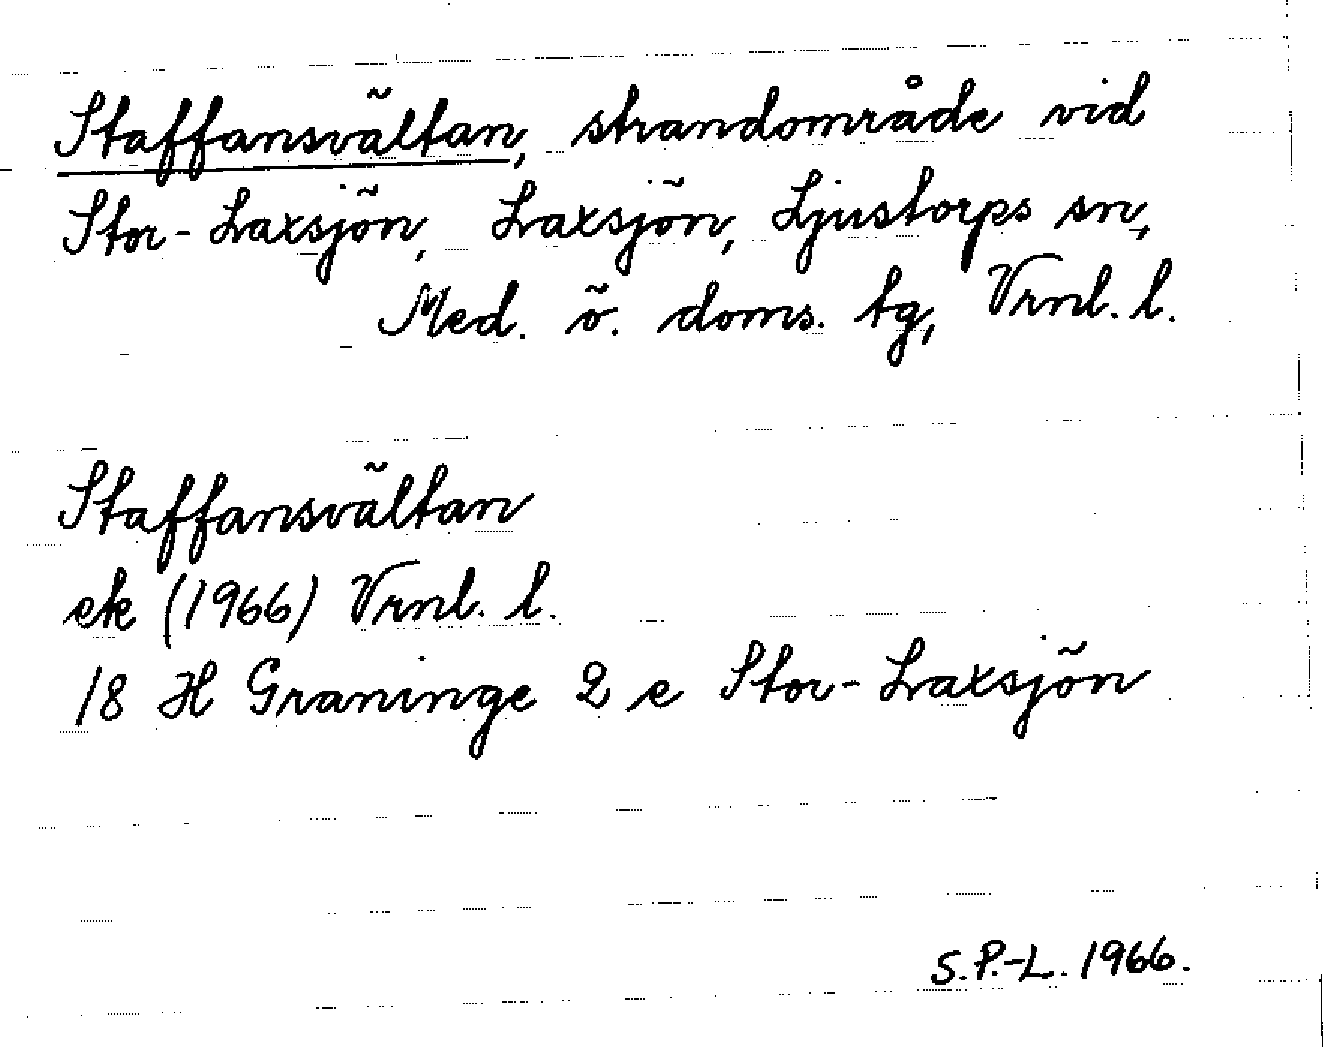 Staffansvältan, strandområde vid
Stor-Laxsjön, Laxsjön, Ljustorps sn,
Med. ö. doms. tg, Vrnl. l.
Staffansvältan
ek (1966) Vrnl. l.
18 H Graninge 2 e Stor-Laxsjön
S.P.-L. 1966.